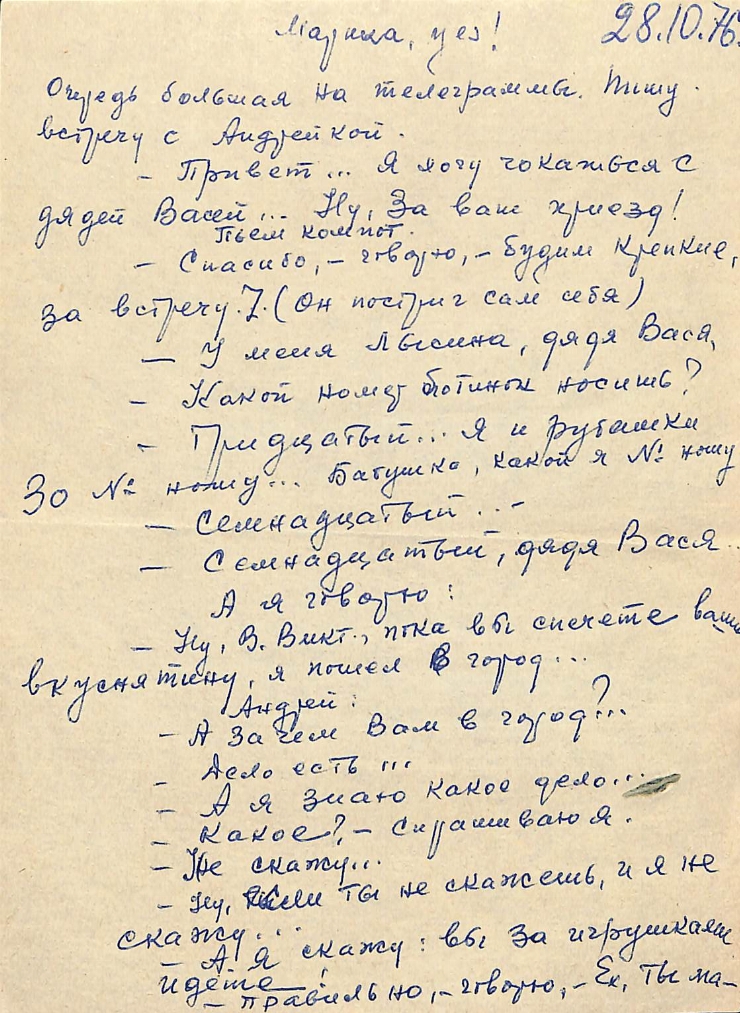 Маринка, yes! 28.10.76.
Очередь большая на телеграммы. Пишу
встречу с Андрейкой.
- Привет... Я хочу чокаться с
дядей Васей... Ну, За ваш приезд!
Пьем компот.
- Спасибо, - говорю, - будим крепкие,
за встречу. (Он постриг сам себя)
- У меня лысина, дядя Вася,
- Какой номер ботинок носишь?
- Тридцатый... Я и рубашки
30 № ношу... Бабушка, какой я № ношу
- Семнадцатый...-
- Семнадцатый, дядя Вася..
А я говорю:
- Ну, В. Викт., пока вы спечете вашу
вкуснятину, я пошел в город...
Андрей:
- А зачем Вам в город?...
- Дело есть...
- А я знаю какое дело...
- Какое? - Спрашиваю я.
- Не скажу...
- Ну, если ты не скажешь, и я не
скажу...
- А я скажу: вы за игрушками
идёте!
- Правильно, - говорю, - Ех, ты ма-